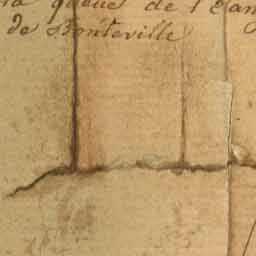 la queue de l'Etan
de Bonteville